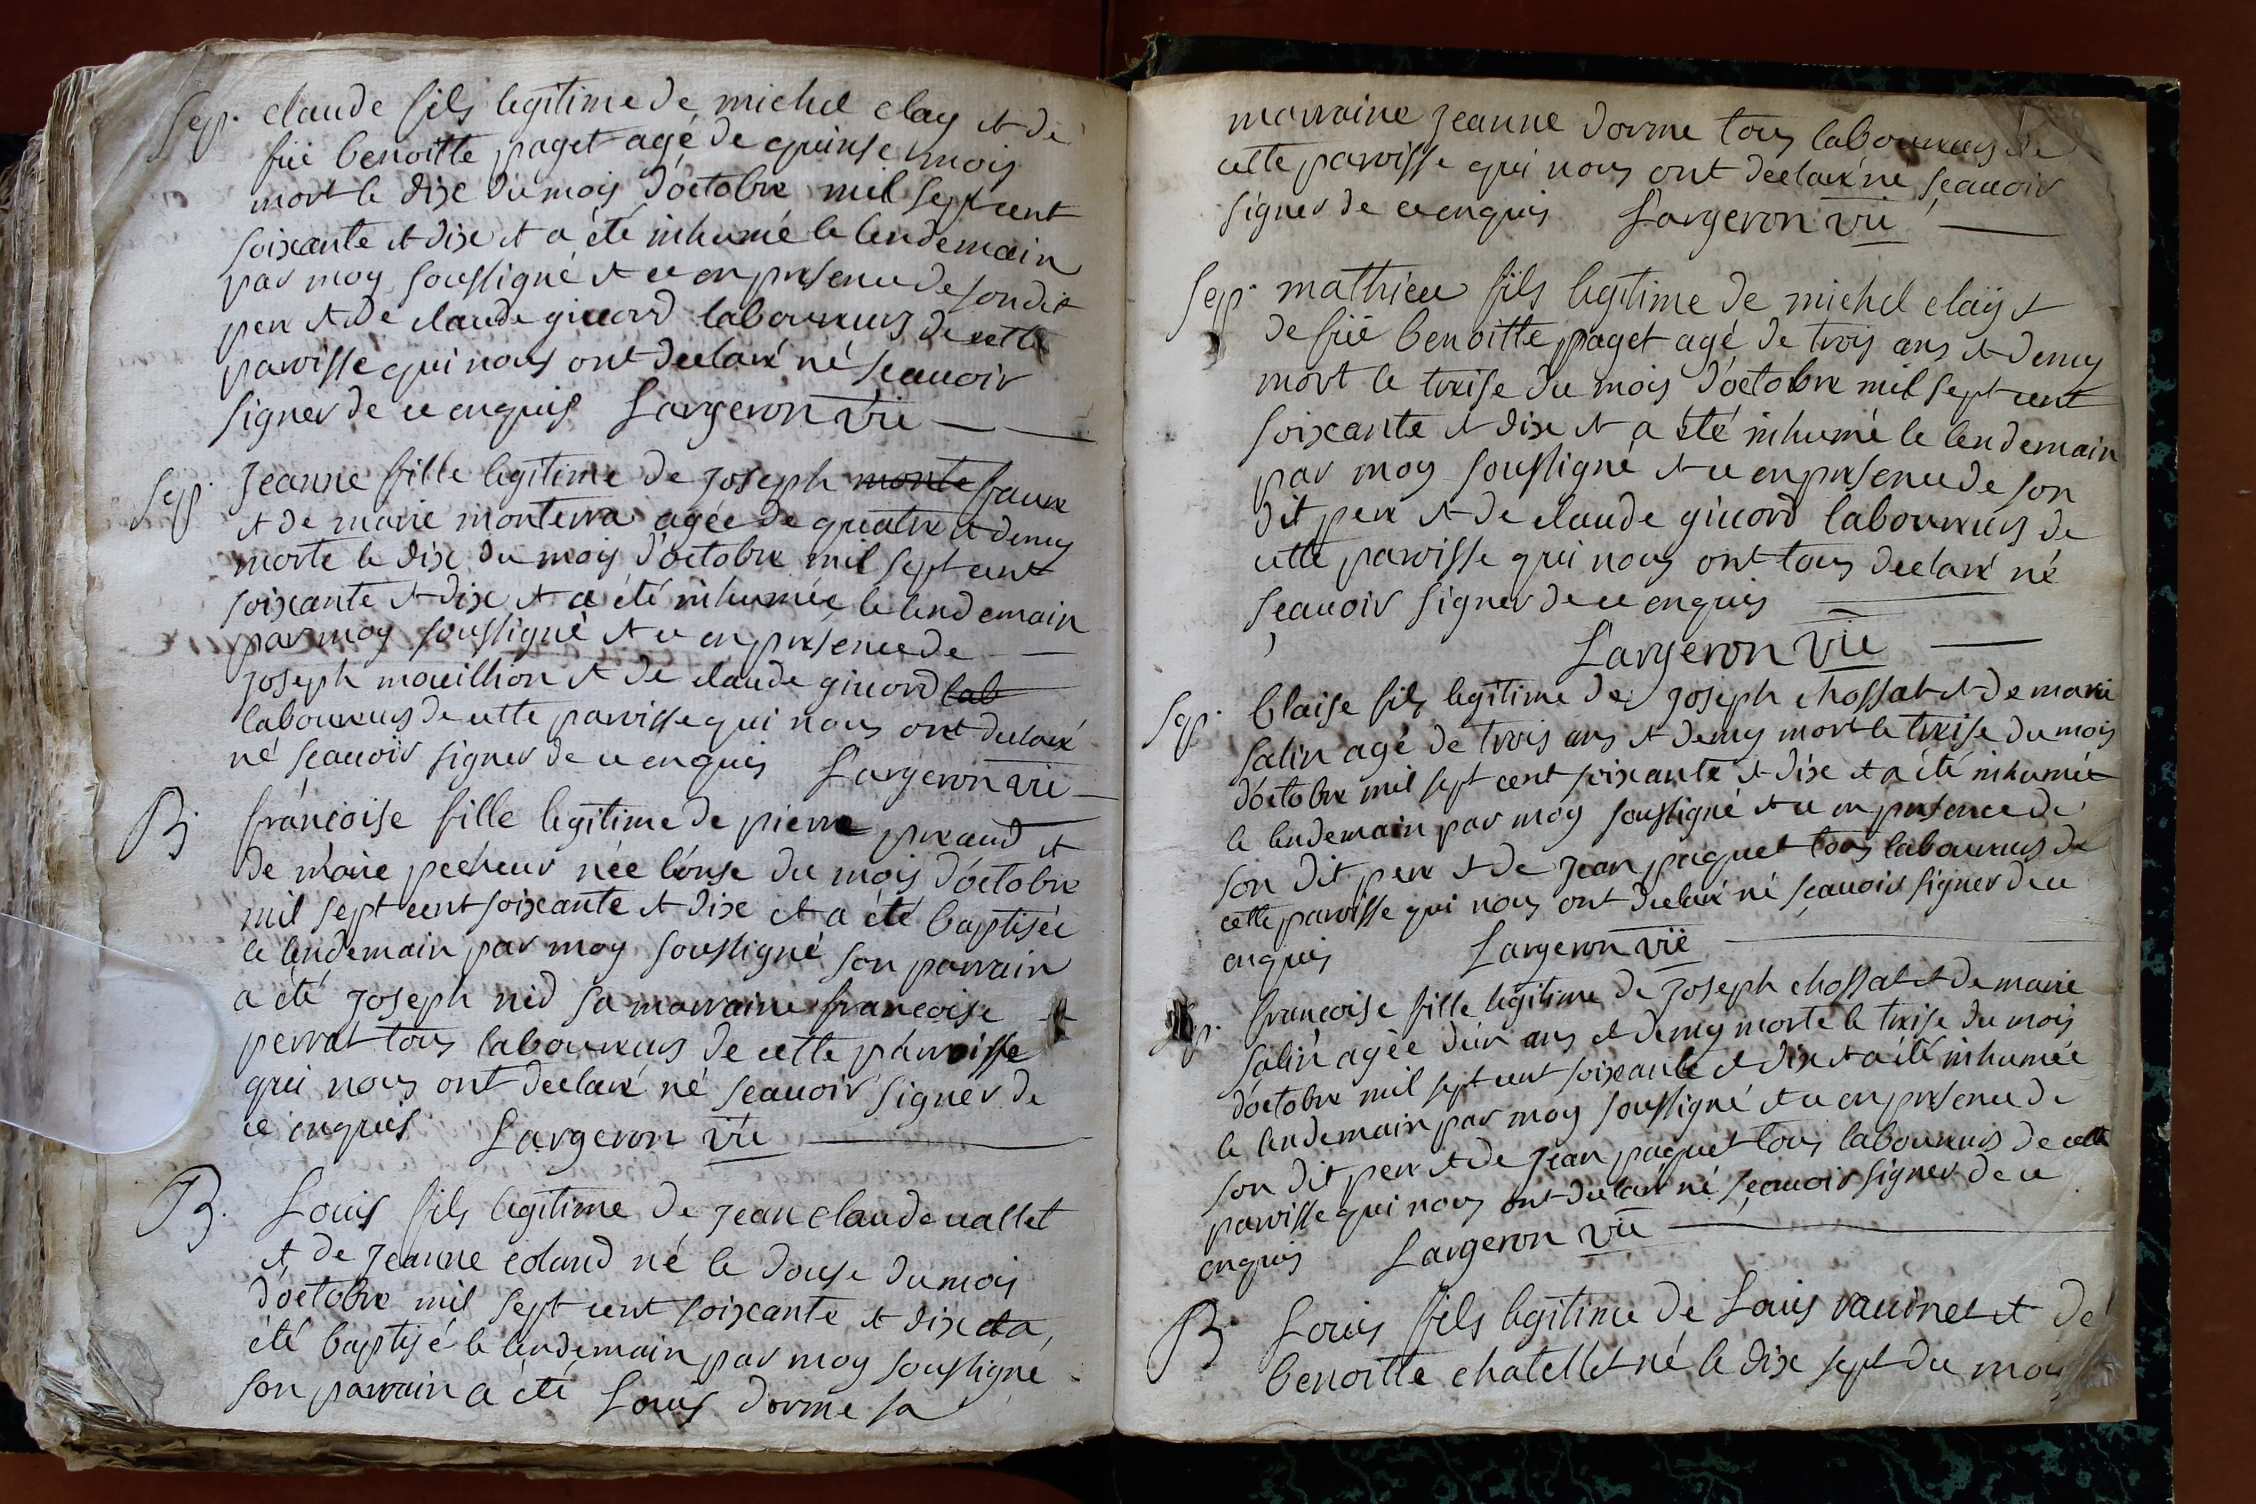 Sep. claude fils legitime de michel clay et de
füe benoitte paget agé de quinse mois
mort le dixe du mois d'octobre mil sept cent
soixante et dixe et a été inhumé le lendemain
par moy soussigné et ce en presence de son dit
pere et de claude giuord laboureurs de cette
paroisse qui nous ont declaré né scauoir
signer de ce enquis Largeron vie
Sep. Jeanne fille legitime de Joseph monte faure
et de marie monterra agée de quatre et demy
morte le dixe du mois d'octobre mil sept cent
soixante et dixe et a été inhumée le lendemain
par moy soussigné et ce en presence de
Joseph mouillion et de claude giuord lab
laboureurs de cette paroisse qui nous ont declaré
né scauoir signer de ce enquis Largeron vie
B. francoise fille legitime de pierre preaud et
de marie pecheur née l'onse du mois d'octobre
mil sept cent soixante et dixe et a été baptisée
le lendemain par moy soussigné son parrain
a été Joseph nid sa marraine francoise
perrat tous laboureurs de cette parroisse
qui nous ont declaré né scauoir signer de
ce enquis Largeron vie
B. Louis fils legitime de Jean claude uallet
et de Jeanne coland né le douse du mois
d'octobre mil sept cent soixante et dixe et a
été baptisé le lendemain par moy soussigné
son parrain a été Louis dorme sa
marraine Jeanne dorme tous laboureurs de
cette paroisse qui nous ont declaré né scauoir
signer de ce enquis Largeron vie
Sep. mathieu fils legitime de michel claÿ et
de füe benoitte paget agé de trois ans et demy
mort le treise du mois d'octobre mil sept cent
soixante et dixe et a été inhumé le lendemain
par moy soussigné et ce en presence de son
dit pere et de claude giuord laboureurs de
cette paroisse qui nous ont tous declaré né
scauoir signer de ce enquis
Largeron vie
Sep. blaise fils legitime de Joseph chossat et de marie
salin agé de trois ans et demy mort le treise du mois
d'octobre mil sept cent soixante et dixe et a été inhumée
le lendemain par moy soussigné et ce en presence de
son dit pere et de Jean paquet tous laboureurs de
cette paroisse qui nous ont declaré né scauoir signer de ce
enquis Largeron vie
Sep. francoise fille legitime de Joseph chossat et de marie
salin agée d'un ans et demy morte le treise du mois
d'octobre mil sept cent soixante et dixe et a été inhumée
le lendemain par moy soussigné et ce en presence de
son dit pere et de Jean paquet tous laboureurs de cette
paroisse qui nous ont declaré né scauoir signer de ce
enquis Largeron vie
B. Louis fils legitime de Louis vauinet et de
benoitte chatellet né le dixe sept du mois